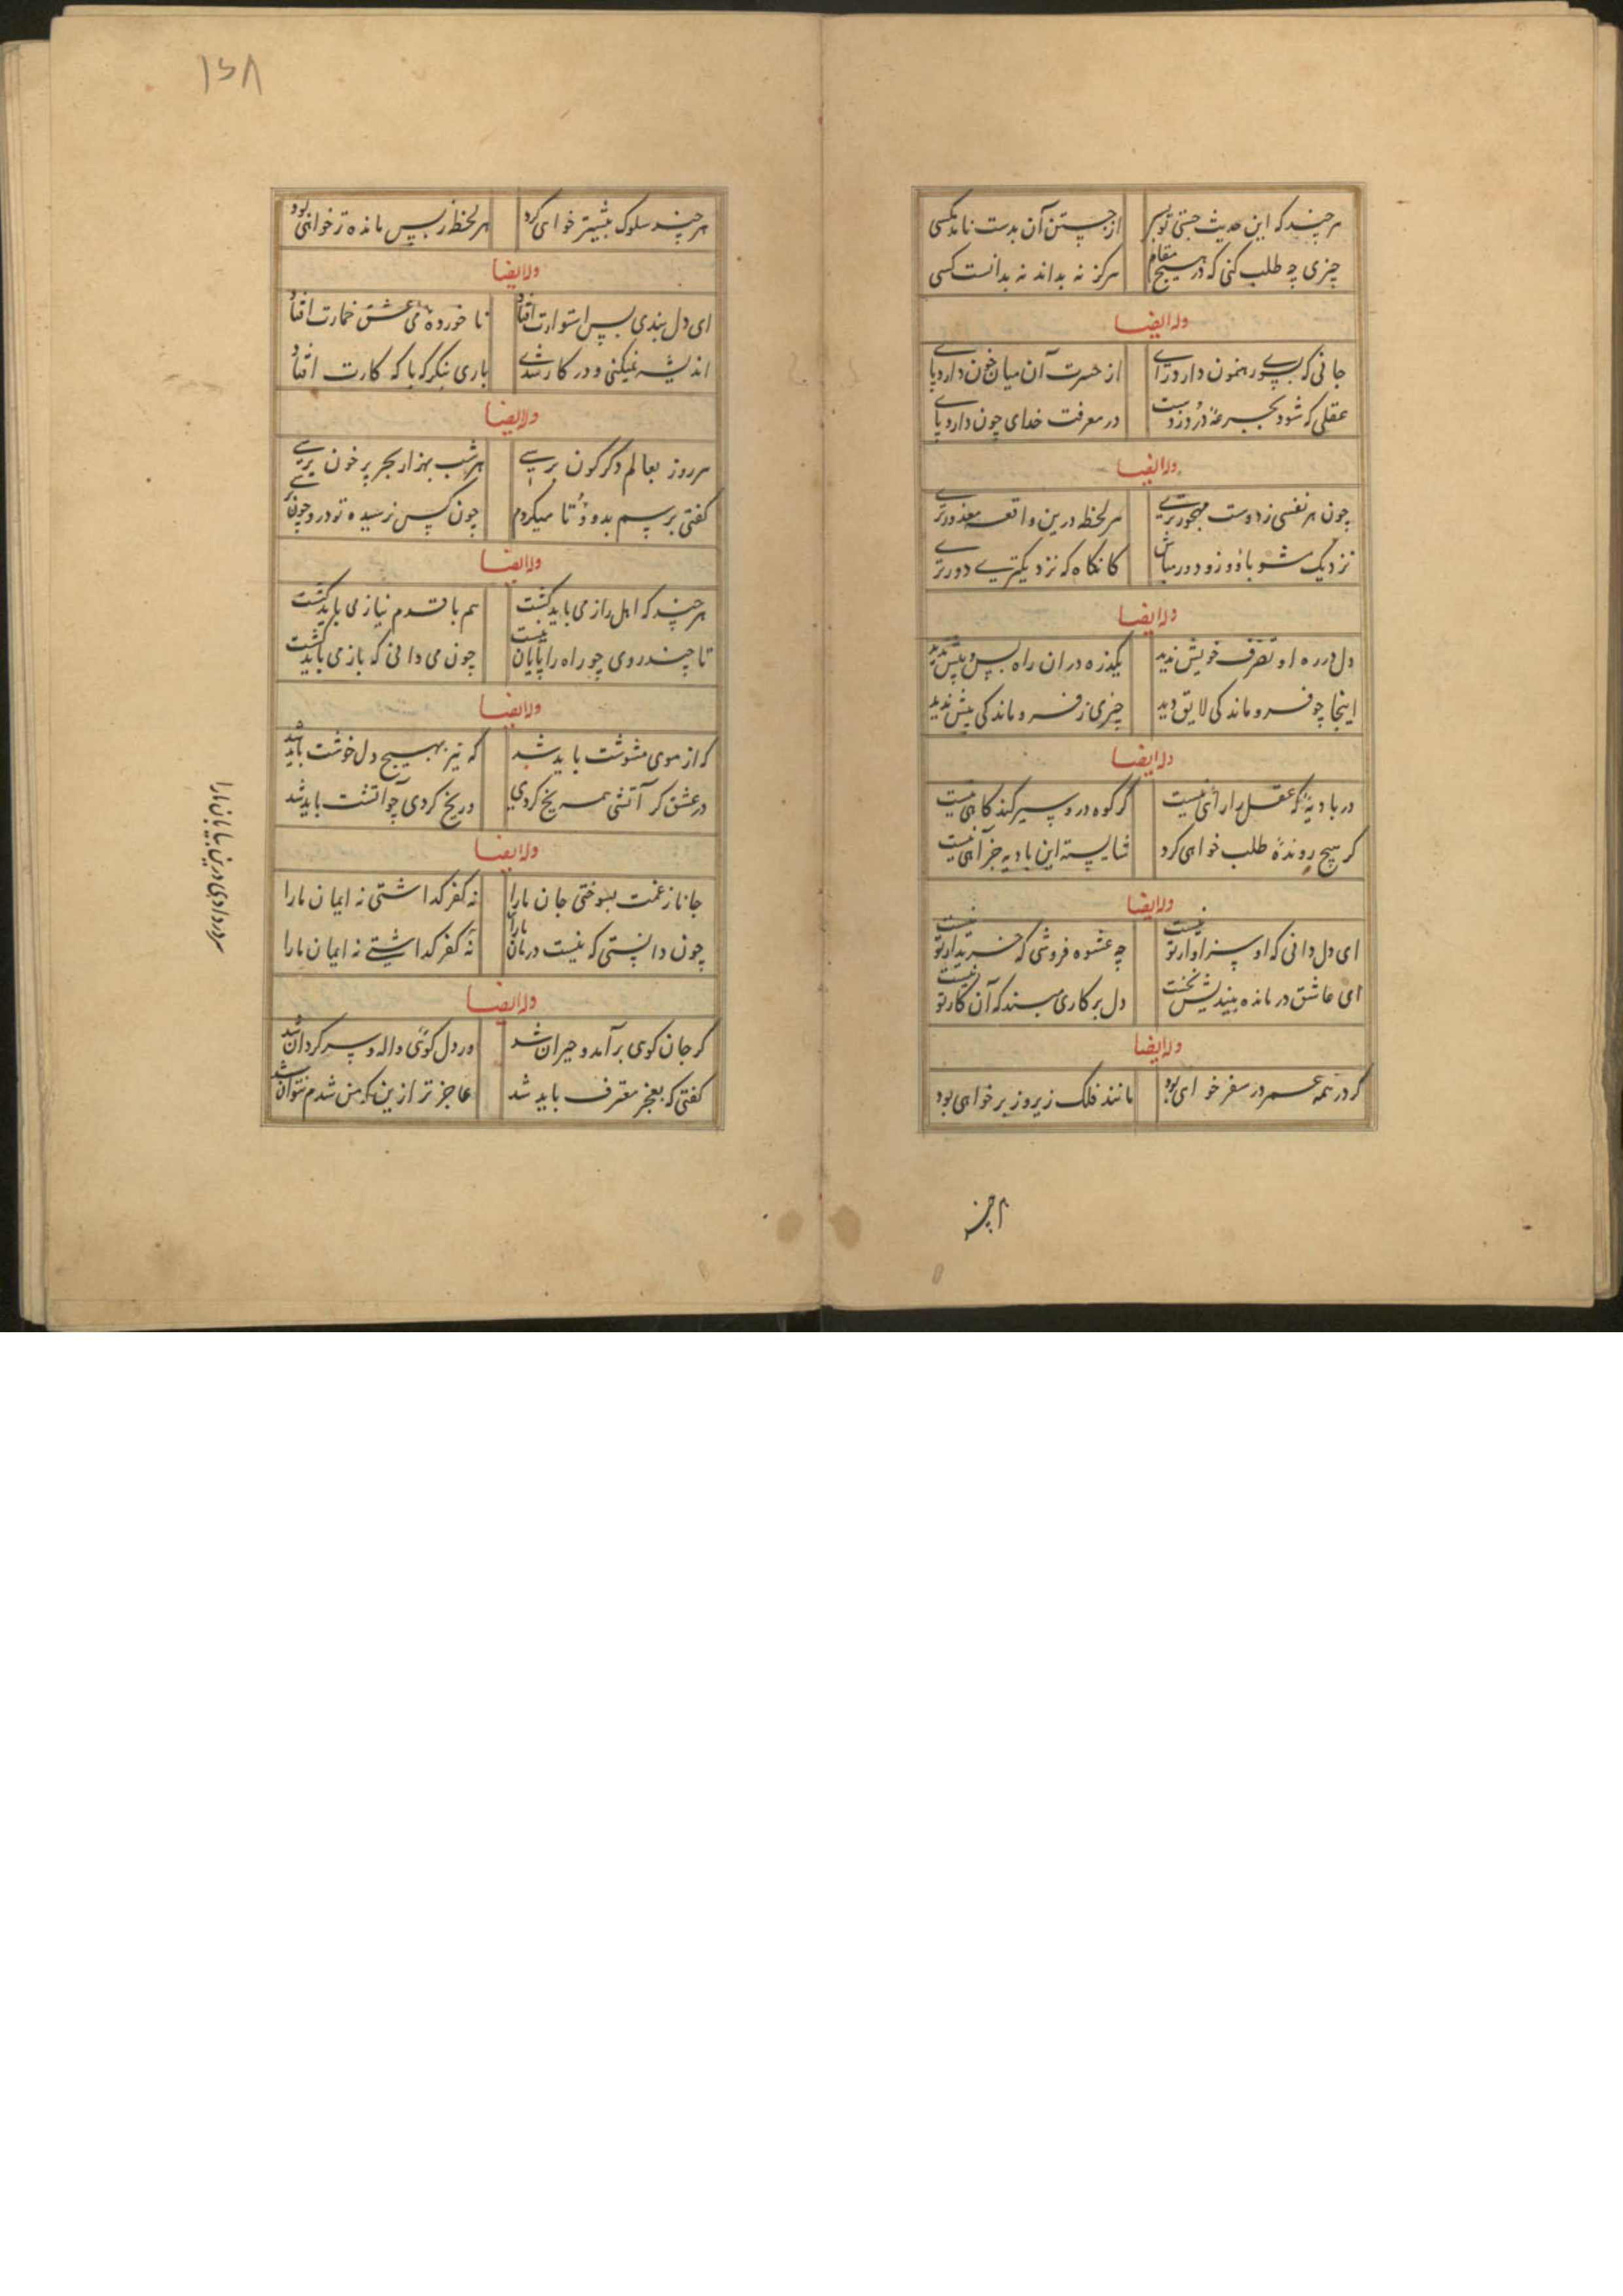 هرچند که این حدیث جستی تو بسی
از جستن آن بدست نامد مکسی
چیزی چه طلب کنی که در هیچ مقام
هرگز نه بداند نه بدانست کسی
وله ایضا
جانی که بسوی رهنمون دارد رای
از حسرت آن میان خون دارد پای
عقلی که شود بجرعهٔ درد زدست
در معرفت خدای چون دارد پای
وله ایضا
چون هر نفسی ز دوست مهجورتری
هر لحظه درین واقعه معذورتری
نزدیک مشو بدو و زو دور مباش
کانگاه که نزدیکتری دورتری
وله ایضا
دل در ره او تصرف خویش ندید
یکذره در آن راه پس و پیش ندید
اینجا چو فروماند کی لایق دید
چیزی ز فروماندکی بیش ندید
وله ایضا
در بادیهٔ که عقل را راهی نیست
گر کوه درو سیر کند کاهی نیست
گر هیچ روندهٔ طلب خواهی کرد
شایسته این بادیه جز آهی نیست
وله ایضا
ای دل دانی که او سزاوار تو نیست
چه عشوه فروشی که خریدار تو نیست
ای عاشق درمانده بیندیش نخست
دل بر کاری مبند که آن کار تو نیست
وله ایضا
گر در همه عمر در سفر خواهی بود
مانند فلک زیر و زبر خواهی بود
هرچند
۱۵۸
هرچند سلوک بیشتر خواهی کرد
هر لحظه ز پس مانده‌تر خواهی بود
وله ایضا
ای دل بندی بس استوارت افتاد
ناخورده می عشق خمارت افتاد
اندیشه نمیکنی و در کار شدی
باری بنگر که با که کارت افتاد
وله ایضا
هر روز بعالم دگرگون برسی
هر شب بهزار بحر پر خون برسی
گفتی برسم بدو و تا میکردم
چون کس نرسیده تو درو چون برسی
وله ایضا
هرچند که اهل راز می باید گشت
هم با قدم نیاز می باید گشت
تا چند روی چو راه را پایان نیست
چون می دانی که باز می باید گشت
وله ایضا
که از موی مشوشت باید شد
که نیز بهیچ دل خوشت باید شد
در عشق گر آتشی همه یخ گردی
در یخ گردی چو آتشت باید شد
وله ایضا
جانا ز غمت بسوختی جان ما را
نه کفر گذاشتی نه ایمان ما را
چون دانستی که نیست درمان ما را
نه کفر گذاشتی نه ایمان ما را
وله ایضا
گر جان گوی برآمد و حیران شد
ور دل گوئی واله و سرگردان شد
گفتی که بعجز معترف باید شد
عاجزتر ازین که من شدم نتوان شد
سر دادی درین بیابان ما را